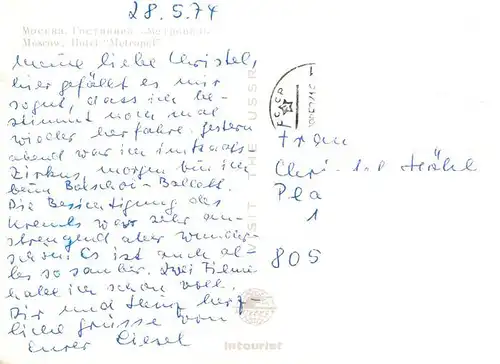 28.5.74
Москва. Гостиница „Метрополь“
Moscow. Hotel "Metropol"
Meine liebe Christel,
hier gefällt es mir
so gut, dass ich be-
stimmt noch mal
wieder herfahre. gestern
abend war ich im Staats-
Zirkus, morgen bin ich
beim Bolschoi-Ballett.
Die Besichtigung des
Kremls war sehr an-
strengend aber wunder-
schön. Es ist auch al-
les so sauber. Zwei Filme
habe ich schon voll.
Dir und Heinz herz-
liche grüsse von
Eurer Liesel
VISIT THE USSR
intourist
Frau
Christel
1
805